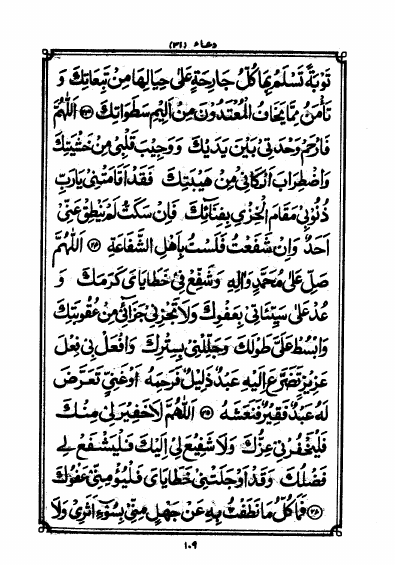 دعاء (۳۱)
تَوْبَةً تَسْلَمُ بِهَا كُلُّ جَارِحَةٍ عَلَىٰ حِيَالِهَا مِنْ تَبِعَاتِكَ وَ
تَأْمَنُ مِمَّا يَخَافُ الْمُعْتَدُونَ مِنْ أَلِيمِ سَطَوَاتِكَ اَللّٰهُمَّ
فَارْحَمْ وَحْدَتِي بَيْنَ يَدَيْكَ وَوَجِيبَ قَلْبِي مِنْ خَشْيَتِكَ
وَاضْطِرَابَ أَرْكَانِي مِنْ هَيْبَتِكَ فَقَدْ أَقَامَتْنِي يَارَبِّ
ذُنُوبِي مَقَامَ الْخِزْيِ بِفِنَائِكَ فَإِنْ سَكَتُّ لَمْ يَنْطِقْ عَنِّي
أَحَدٌ وَإِنْ شَفَعْتُ فَلَسْتُ بِأَهْلِ الشَّفَاعَةِ اَللّٰهُمَّ
صَلِّ عَلَىٰ مُحَمَّدٍ وَآلِهِ وَشَفِّعْ فِي خَطَايَايَ كَرَمَكَ وَ
عُدْ عَلَىٰ سَيِّئَاتِي بِعَفْوِكَ وَلَا تَجْزِنِي جَزَائِي مِنْ عُقُوبَتِكَ
وَابْسُطْ عَلَيَّ طَوْلَكَ وَجَلِّلْنِي بِسِتْرِكَ وَافْعَلْ بِي فِعْلَ
عَزِيزٍ تَضَرَّعَ إِلَيْهِ عَبْدٌ ذَلِيلٌ فَرَحِمَهُ أَوْ غَنِيٍّ تَعَرَّضَ
لَهُ عَبْدٌ فَقِيرٌ فَنَعَشَهُ اَللّٰهُمَّ لَا خَفِيرَ لِي مِنْكَ
فَلْيَخْفُرْنِي عِزُّكَ وَلَا شَفِيعَ لِي إِلَيْكَ فَلْيَشْفَعْ لِي
فَضْلُكَ وَقَدْ أَوْجَلَتْنِي خَطَايَايَ فَلْيُؤْمِنِّي عَفْوُكَ
فَمَا كُلُّ مَا نَطَقْتُ بِهِ عَنْ جَهْلٍ مِنِّي بِسُوءِ أَثَرِي وَلَا
۱۰۹